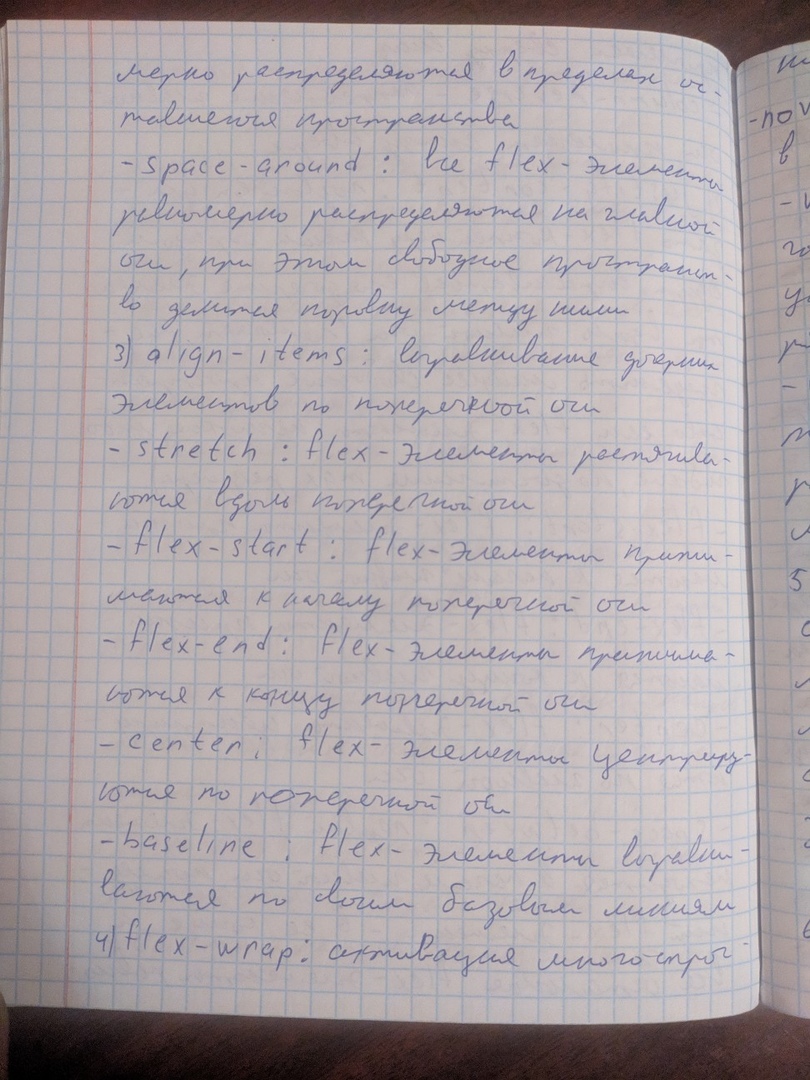 мерно распределяются в пределах ос-
тавшегося пространства
- space-around : все flex-элементы
равномерно распределяются на главной
оси, при этом свободное пространст-
во делится поровну между ними
3) align-items : выравнивание дочерних
элементов по поперечной оси
- stretch : flex-элементы растягива-
ются вдоль поперечной оси
- flex-start : flex-элементы прижи-
маются к началу поперечной оси
- flex-end : flex-элементы прижима-
ются к концу поперечной оси
- center ; flex-элементы центриру-
ются по поперечной оси
- baseline : flex-элементы выравни-
ваются по своим базовым линиям
4) flex-wrap : активация многострoч-